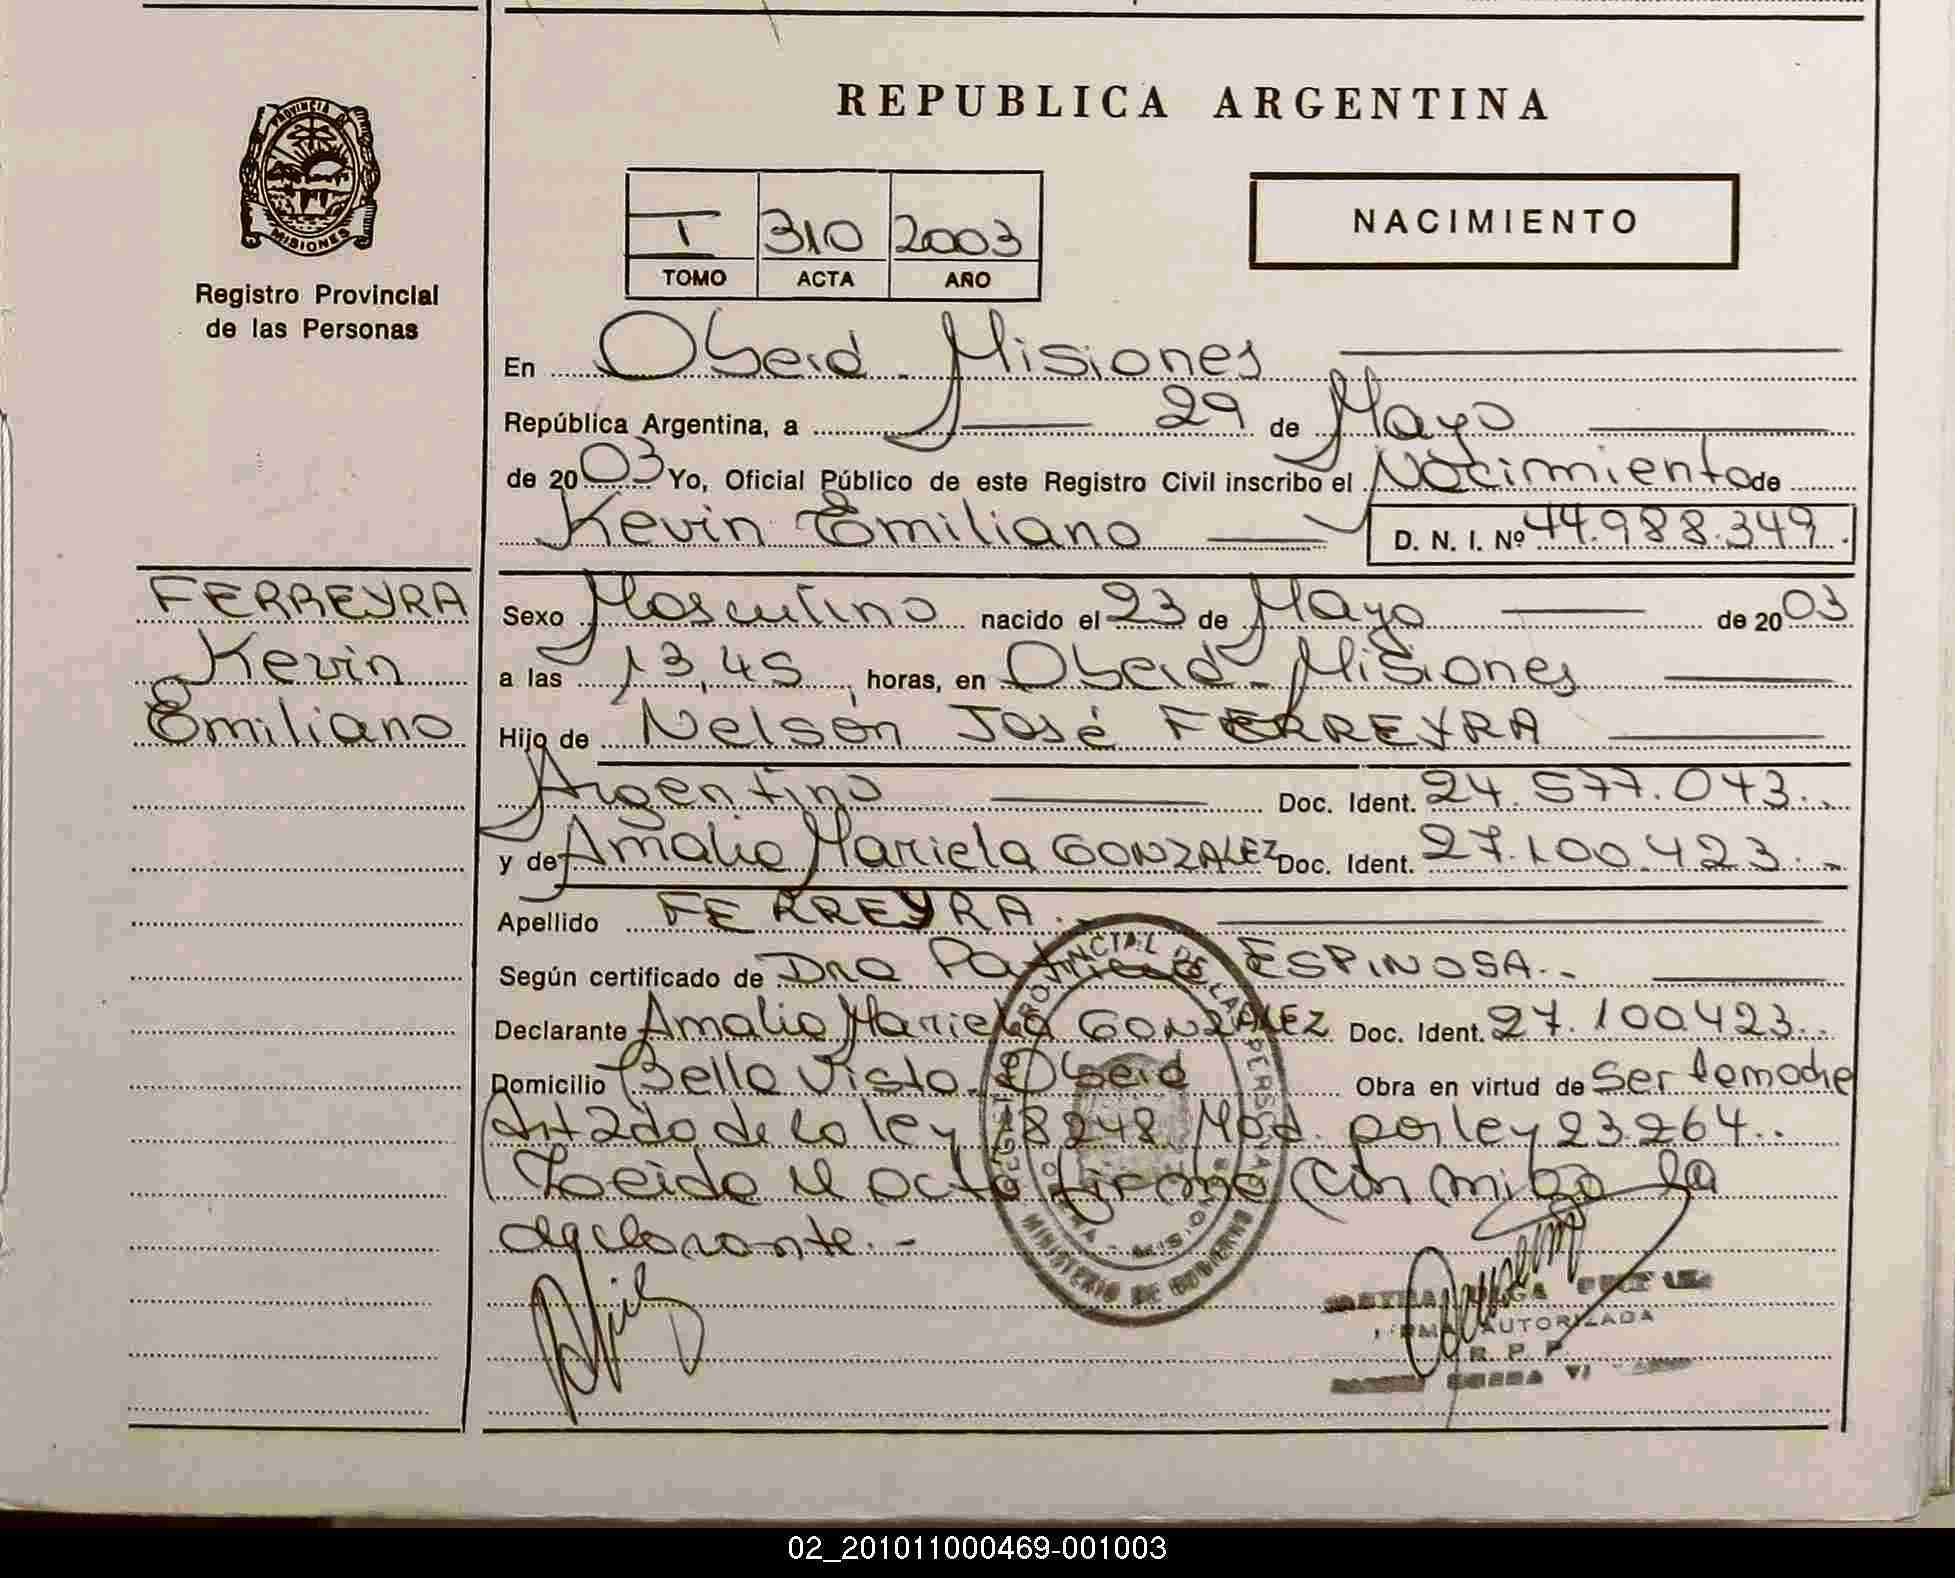 REPUBLICA ARGENTINA
PROVINCIA DE
MISIONES
Registro Provincial
de las Personas
I 310 2003
TOMO ACTA AÑO
NACIMIENTO
En Oberá - Misiones
República Argentina, a 29 de Mayo
de 2003 Yo, Oficial Público de este Registro Civil inscribo el Nacimiento de
Kevin Emiliano D. N. I. Nº 44.988.349.
FERREYRA
Kevin
Emiliano
Sexo Masculino nacido el 23 de Mayo de 2003
a las 13,45 horas, en Oberá - Misiones
Hijo de Nelson José FERREYRA
Argentino Doc. Ident. 24.577.043.-
y de Amalia Mariela GONZALEZ Doc. Ident. 27.100.423.-
Apellido FERREYRA.-
Según certificado de Dra Patricia ESPINOSA.-
Declarante Amalia Mariela GONZALEZ Doc. Ident. 27.100.423.-
Domicilio Bella Vista - Oberá Obra en virtud de Ser la madre
Art 2do de la ley 18248 Mod. por ley 23.264.-
Leída el acta firma con migo la
declarante.-
PROVINCIAL DE LAS PERSONAS
MINISTERIO DE GOBIERNO
OLGA
FIRMA AUTORIZADA
R. P. P.
02_201011000469-001003